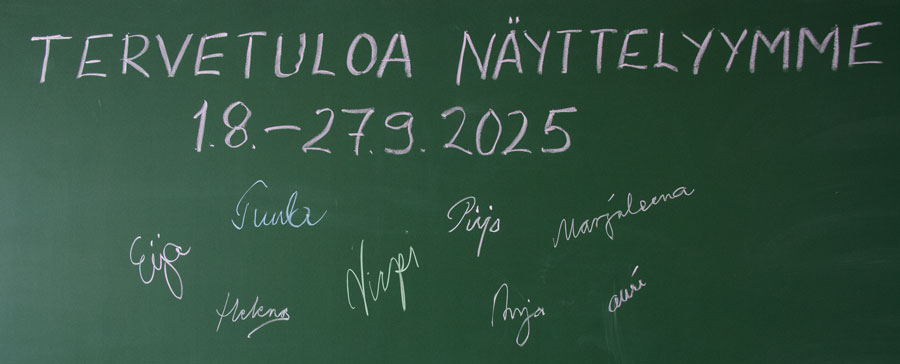 TERVETULOA NÄYTTELYYMME
1.8.-27.9.2025
Tuula
Pirjo
Marjaleena
Eija
Virpi
Helena
Anja
auri